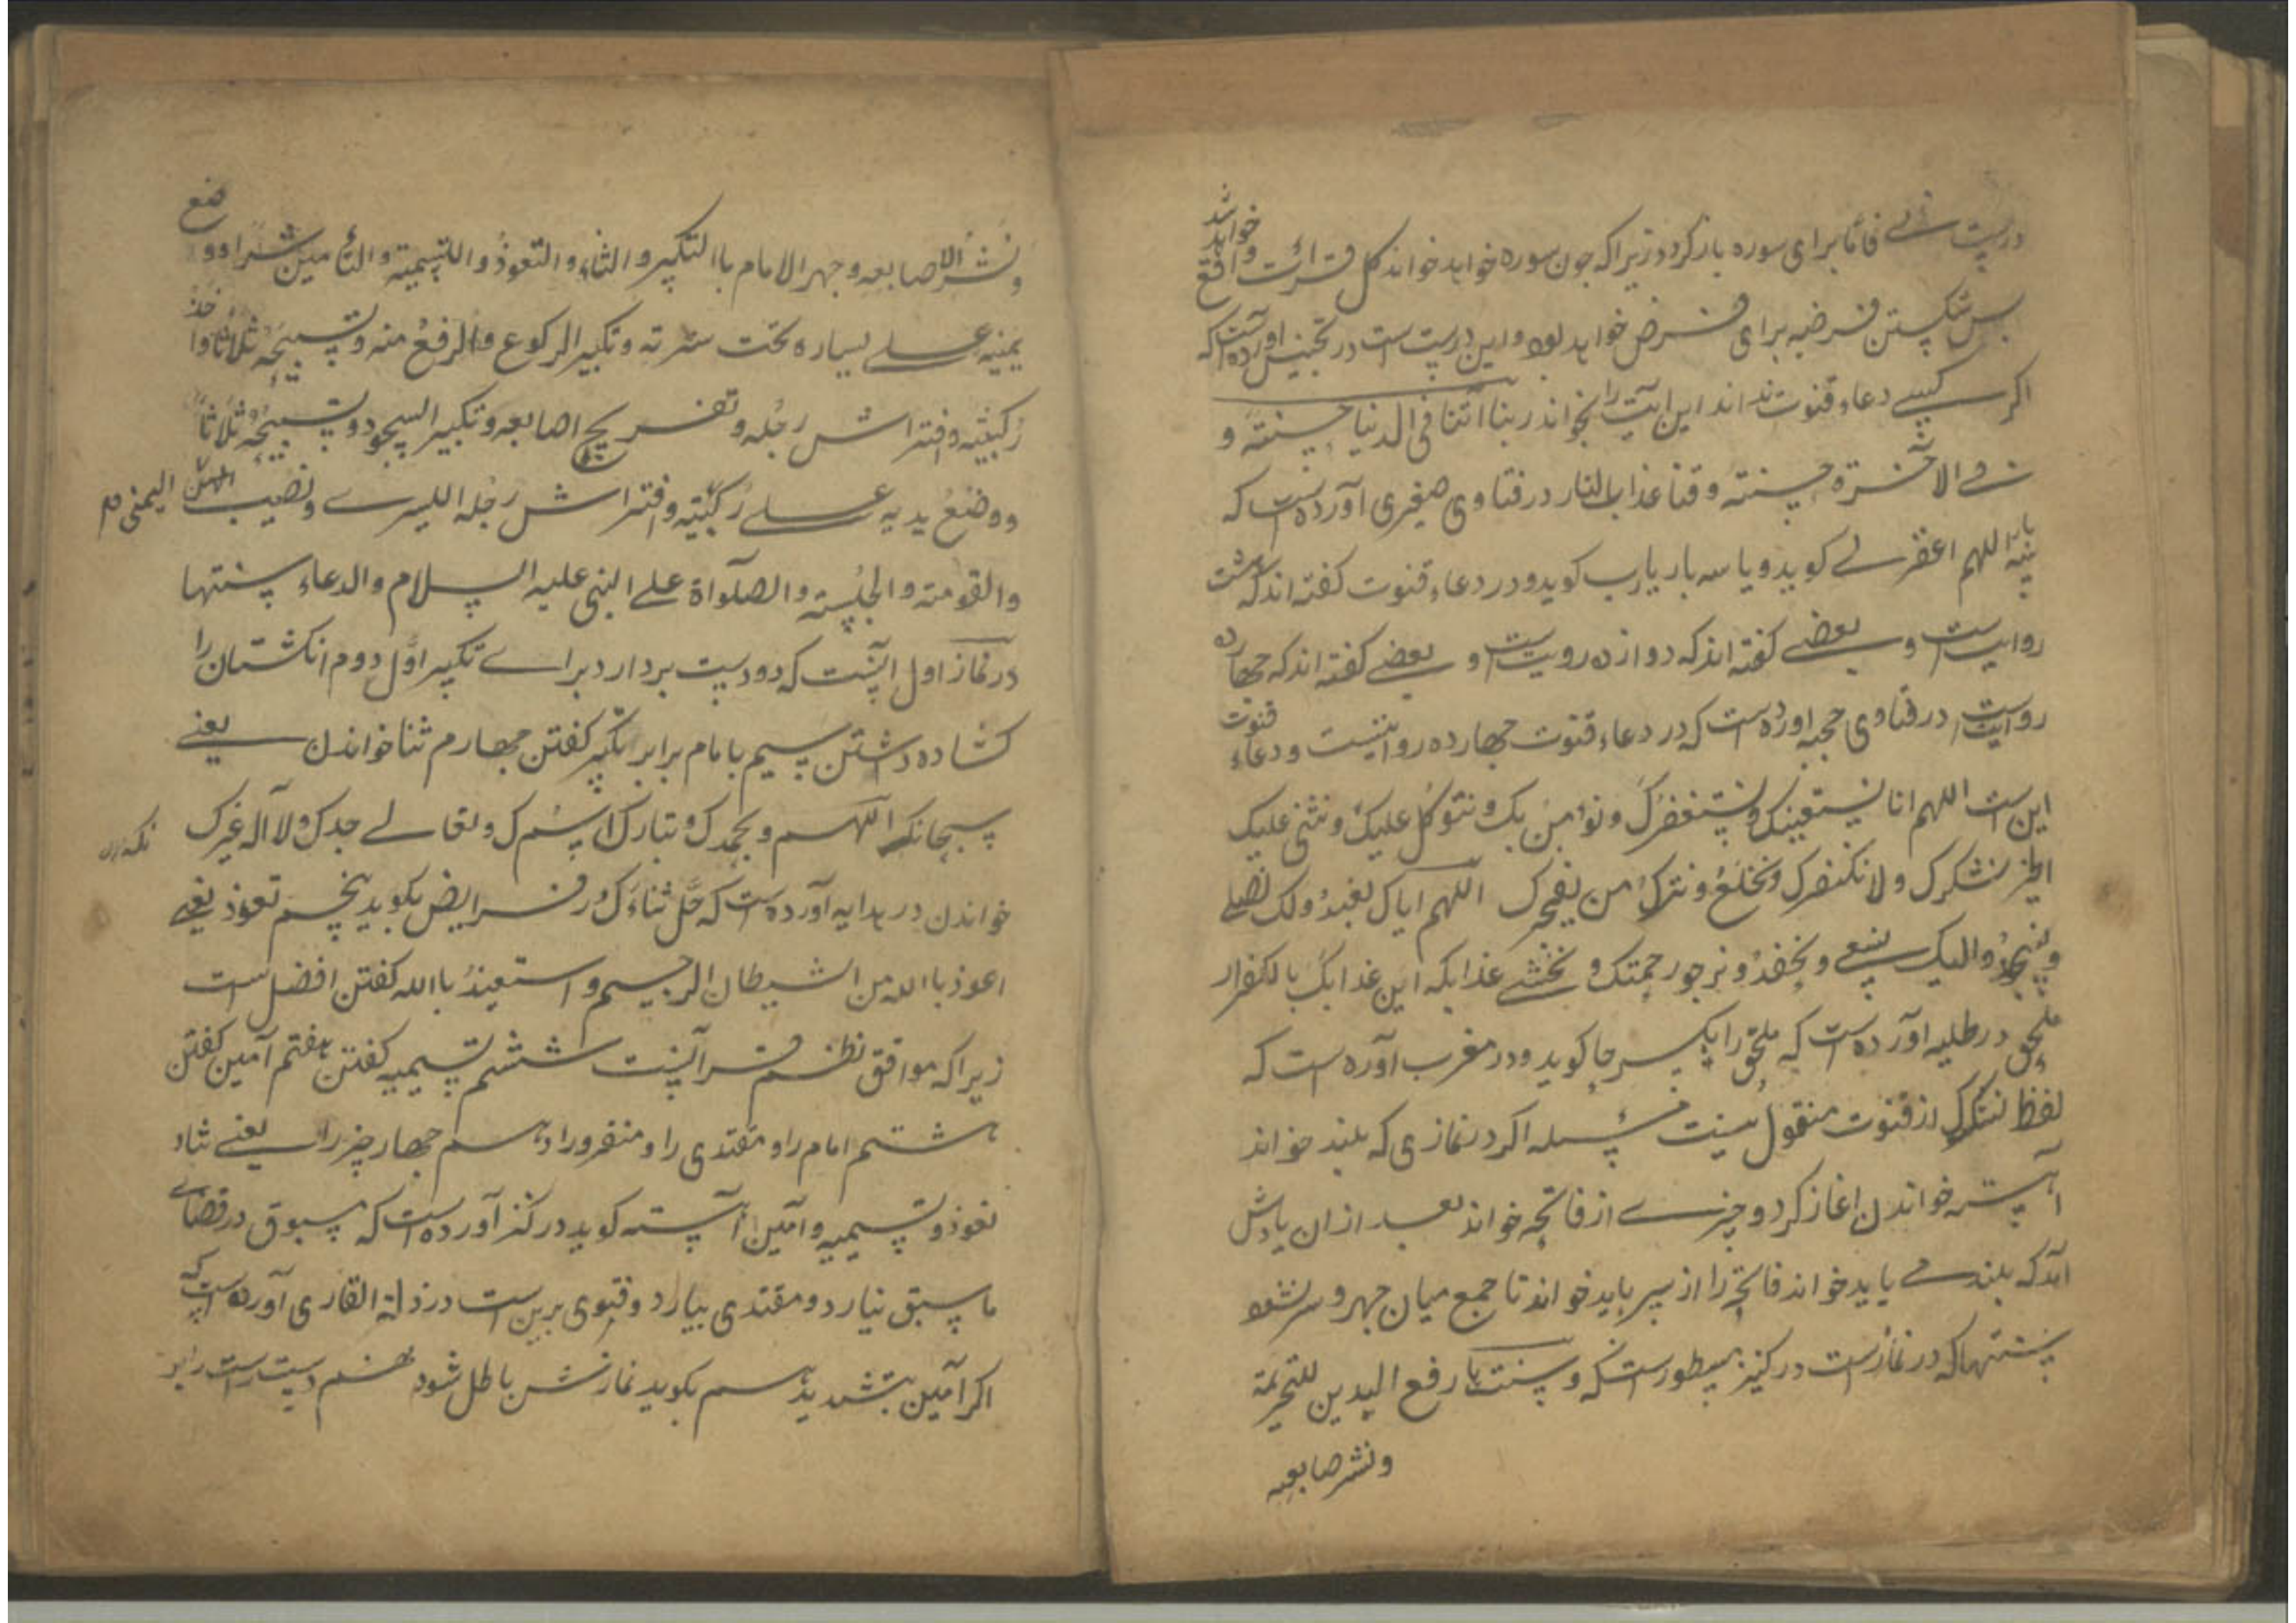 درست نے فاما برای سوره باز کردد زیراکه جون سوره خواهد خواند کل قرائت واقع خواهد شد
بس شکستن فرضه برای فرض خواهد بود و این درست است در تجنیس آورده است که
اکر کسے دعاء قنوت نداند این آیت را بخواند ربنا اتنا فی الدنیا حسنته و
فے الاخرة حسنته و قنا عذاب النار در فتاوی صغیری آورده است که
بار اللهم اغفر لے کوید و یا سه بار یارب کوید و در دعاء قنوت کفته اند که هشت
روایت است و بعضے کفته اند که دوازده رویت است و بعضے کفته اند که جهارده
روایت است در فتاوی حجه اورده است که در دعاء قنوت جهارده روایتست و دعاء قنوت
این ست اللهم انا نستعینک و نستغفرک و نؤمن بک و نتوکل علیک و نثنی علیک
الخیر نشکرک و لا نکفرک و نخلع و نترک من یفجرک اللهم ایاک نعبد و لک نصلے
و نسجد و الیک نسعے و نحفد و نرجو رحمتک و نخشے عذابک این عذابک بالکفار
ملحق در طلبه آورده است که ملحق را بکسر حا کوید و در مغرب آورده است که
لفظ نشکرک از قنوت منقول نیست مسئله اکر در نمازی که بلند خواند
آهسته خواندن اغاز کرد و چیزے از فاتحه خواند بعد ازان یادش
آمد که بلند مے باید خواند فاتحه را از سر باید خواند تا جمع میان جهر و سر نشود
سنتها که در نماز است در کنز مسطور است که و سنتها رفع الیدین للتحریمة
و نشر صابعه
و نشر الاصابعه و جهر الامام با التکبیر و الثناء و التعوذ و التسمیة و التأمین سرا و وضع
یمینه علے یساره تحت سرته و تکبیر الرکوع و الرفع منه و تسبیحه ثلاثا و اخذ
رکبتیه و افتراش رجله و تفریج اصابعه و تکبیر السجود و تسبیحه ثلاثا
و وضع یدیه علے رکبتیه و افتراش رجله الیسرے و نصب الیمنی
و القومته و الجلسته و الصلواة علے النبی علیه السلام و الدعاء سنتها
در نماز اول اینست که دو دست بردارد برا ے تکبیر اول دوم انکشتان را
کشاده داشتن سیم با مام برابر تکبیر کفتن جهارم ثنا خواندن یعنے
سبحانک اللهم و بحمدک و تبارک اسمک و تعالے جدک و لا اله غیرک
خواندن در هدایه آورده است که جل ثناءک در فرایض نکوید پنجم تعوذ یعنے
اعوذ با الله من الشیطان الرجیم و استعیذ با الله کفتن افضل است
زیراکه موافق نظم قرآنست ششم تسمیه کفتن هفتم آمین کفتن
هشتم امام را و مقتدی را و منفرد را و هم جهار چیز را یعنے ثناء
تعوذ و تسمیه و آمین آهسته کوید در کنز آورده است که مسبوق در قضاے
ما سبق نیارد و مقتدی بیارد و فتوی برین ست در زلة القاری آورده است که
اکر آمین بتشدید میم بکوید نمازش باطل شود نهم دست راست را بر